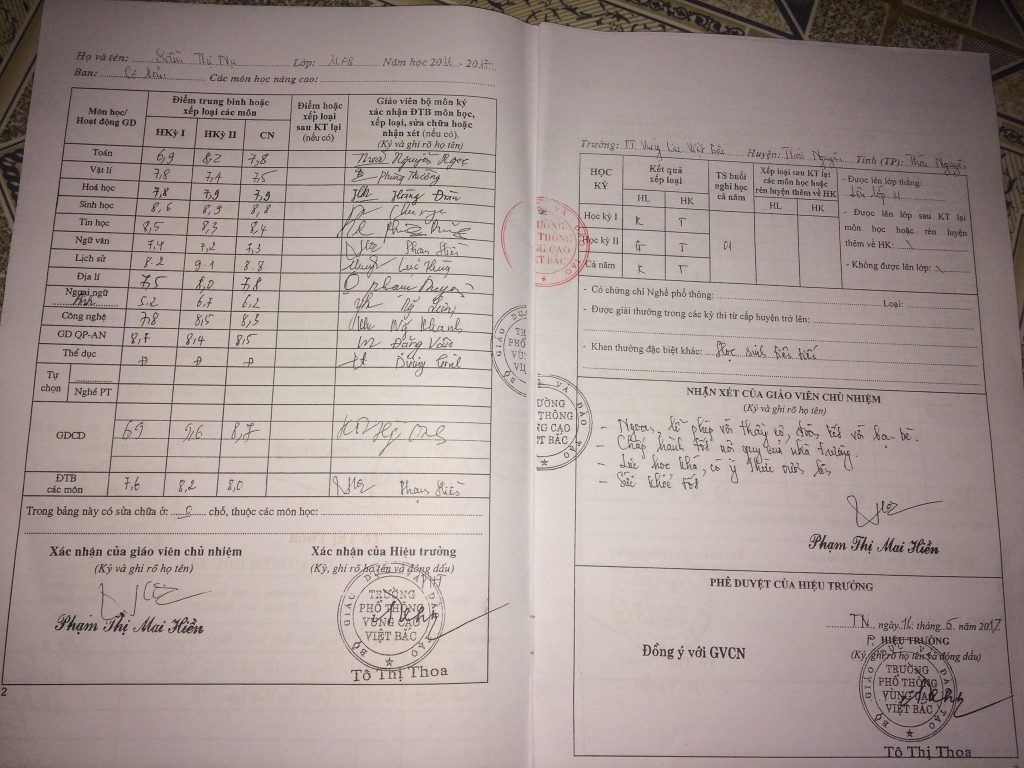 Họ và tên: Thị Lớp: 11A8 Năm học 2016 - 2017
Ban: Cơ bản Các môn học nâng cao:
Môn học/ Hoạt động GD
Điểm trung bình hoặc xếp loại các môn
HKỳ I HKỳ II CN
Điểm hoặc xếp loại sau KT lại (nếu có)
Giáo viên bộ môn ký xác nhận ĐTB môn học, xếp loại, sửa chữa hoặc nhận xét (nếu có). (Ký và ghi rõ họ tên)
Toán 6,9 8,2 7,8 Nguyễn Ngọc
Vật lí 7,8 7,4 7,5 Phùng Thưởng
Hoá học 7,8 7,9 7,9
Sinh học 8,6 8,9 8,8
Tin học 8,5 8,3 8,4
Ngữ văn 7,4 7,2 7,3 Phạm Hiền
Lịch sử 8.2 9.1 8.8
Địa lí 7,5 8,0 7,8 Phạm
Ngoại ngữ Anh 5.2 6,7 6,2
Công nghệ 7,8 8,5 8,3 Khanh
GD QP-AN 8,7 8,4 8,5 Đặng Văn
Thể dục Đ Đ Đ
Tự chọn
Nghề PT
GDCD 6,9 9,6 8,7
ĐTB các môn 7,6 8,2 8,0 Phạm Hiền
Trong bảng này có sửa chữa ở: 0 chỗ, thuộc các môn học:
Xác nhận của giáo viên chủ nhiệm
(Ký và ghi rõ họ tên)
Phạm Thị Mai Hiền
Xác nhận của Hiệu trưởng
(Ký, ghi rõ họ tên và đóng dấu)
BỘ GIÁO DỤC VÀ ĐÀO TẠO
TRƯỜNG
PHỔ THÔNG
VÙNG CAO
VIỆT BẮC
Tô Thị Thoa
2
Trường: PT Vùng Cao Việt Bắc Huyện: Thái Nguyên Tỉnh (TP): Thái Nguyên
HỌC KỲ
Kết quả xếp loại
HL HK
TS buổi nghỉ học cả năm
Xếp loại sau KT lại các môn học hoặc rèn luyện thêm về HK
HL HK
Học kỳ I K T
Học kỳ II G T
Cả năm K T
01
- Được lên lớp thẳng:
Lên lớp
- Được lên lớp sau KT lại môn học hoặc rèn luyện thêm về HK: \
- Không được lên lớp: \
- Có chứng chỉ Nghề phổ thông: Loại:
- Được giải thưởng trong các kỳ thi từ cấp huyện trở lên:
- Khen thưởng đặc biệt khác: Học sinh tiên tiến
NHẬN XÉT CỦA GIÁO VIÊN CHỦ NHIỆM
(Ký và ghi rõ họ tên)
- Ngoan, lễ phép với thầy cô, đoàn kết với bạn bè.
- Chấp hành tốt nội quy của nhà trường.
- Lực học khá, có ý thức
- Sức khỏe tốt
Phạm Thị Mai Hiền
PHÊ DUYỆT CỦA HIỆU TRƯỞNG
TN, ngày 16 tháng 5 năm 2017
P. HIỆU TRƯỞNG
(Ký, ghi rõ họ tên và đóng dấu)
Đồng ý với GVCN
BỘ GIÁO DỤC VÀ ĐÀO TẠO
TRƯỜNG
PHỔ THÔNG
VÙNG CAO
VIỆT BẮC
Tô Thị Thoa